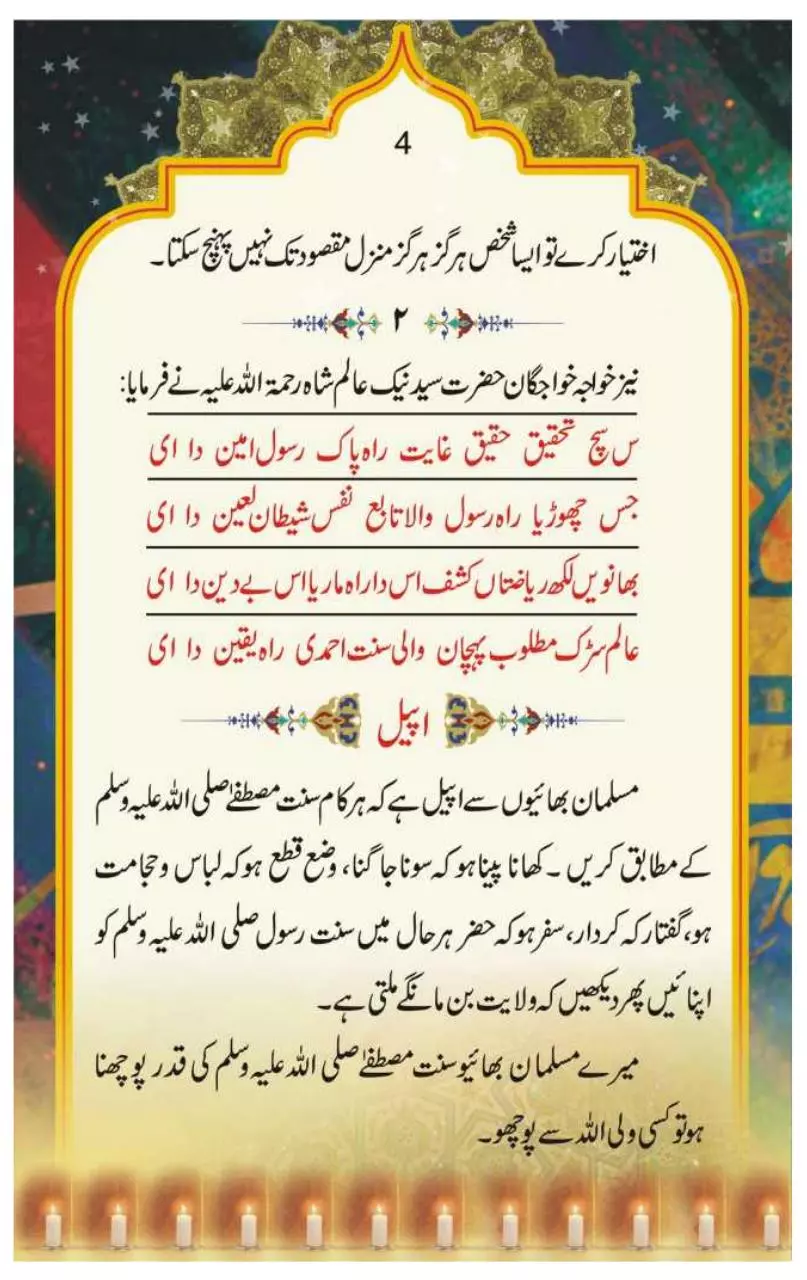 4
اختیار کرے تو ایسا شخص ہرگز ہرگز منزل مقصود تک نہیں پہنچ سکتا۔
۲
نیز خواجہ خواجگان حضرت سید نیک عالم شاہ رحمۃ اللہ علیہ نے فرمایا:
س سچ تحقیق حقیق غایت راہ پاک رسول امین دا ای
جس چھوڑیا راہ رسول والا تابع نفس شیطان لعین دا ای
بھانویں لکھ ریاضتاں کشف اس دا راہ ماریا اس بے دین دا ای
عالم سڑک مطلوب پہچان والی سنت احمدی راہ یقین دا ای
اپیل
مسلمان بھائیوں سے اپیل ہے کہ ہر کام سنت مصطفےٰ صلی اللہ علیہ وسلم
کے مطابق کریں۔ کھانا پینا ہو کہ سونا جاگنا، وضع قطع ہو کہ لباس و حجامت
ہو، گفتار کہ کردار، سفر ہو کہ حضر ہر حال میں سنت رسول صلی اللہ علیہ وسلم کو
اپنائیں پھر دیکھیں کہ ولایت بن مانگے ملتی ہے۔
میرے مسلمان بھائیو سنت مصطفےٰ صلی اللہ علیہ وسلم کی قدر پوچھنا
ہو تو کسی ولی اللہ سے پوچھو۔